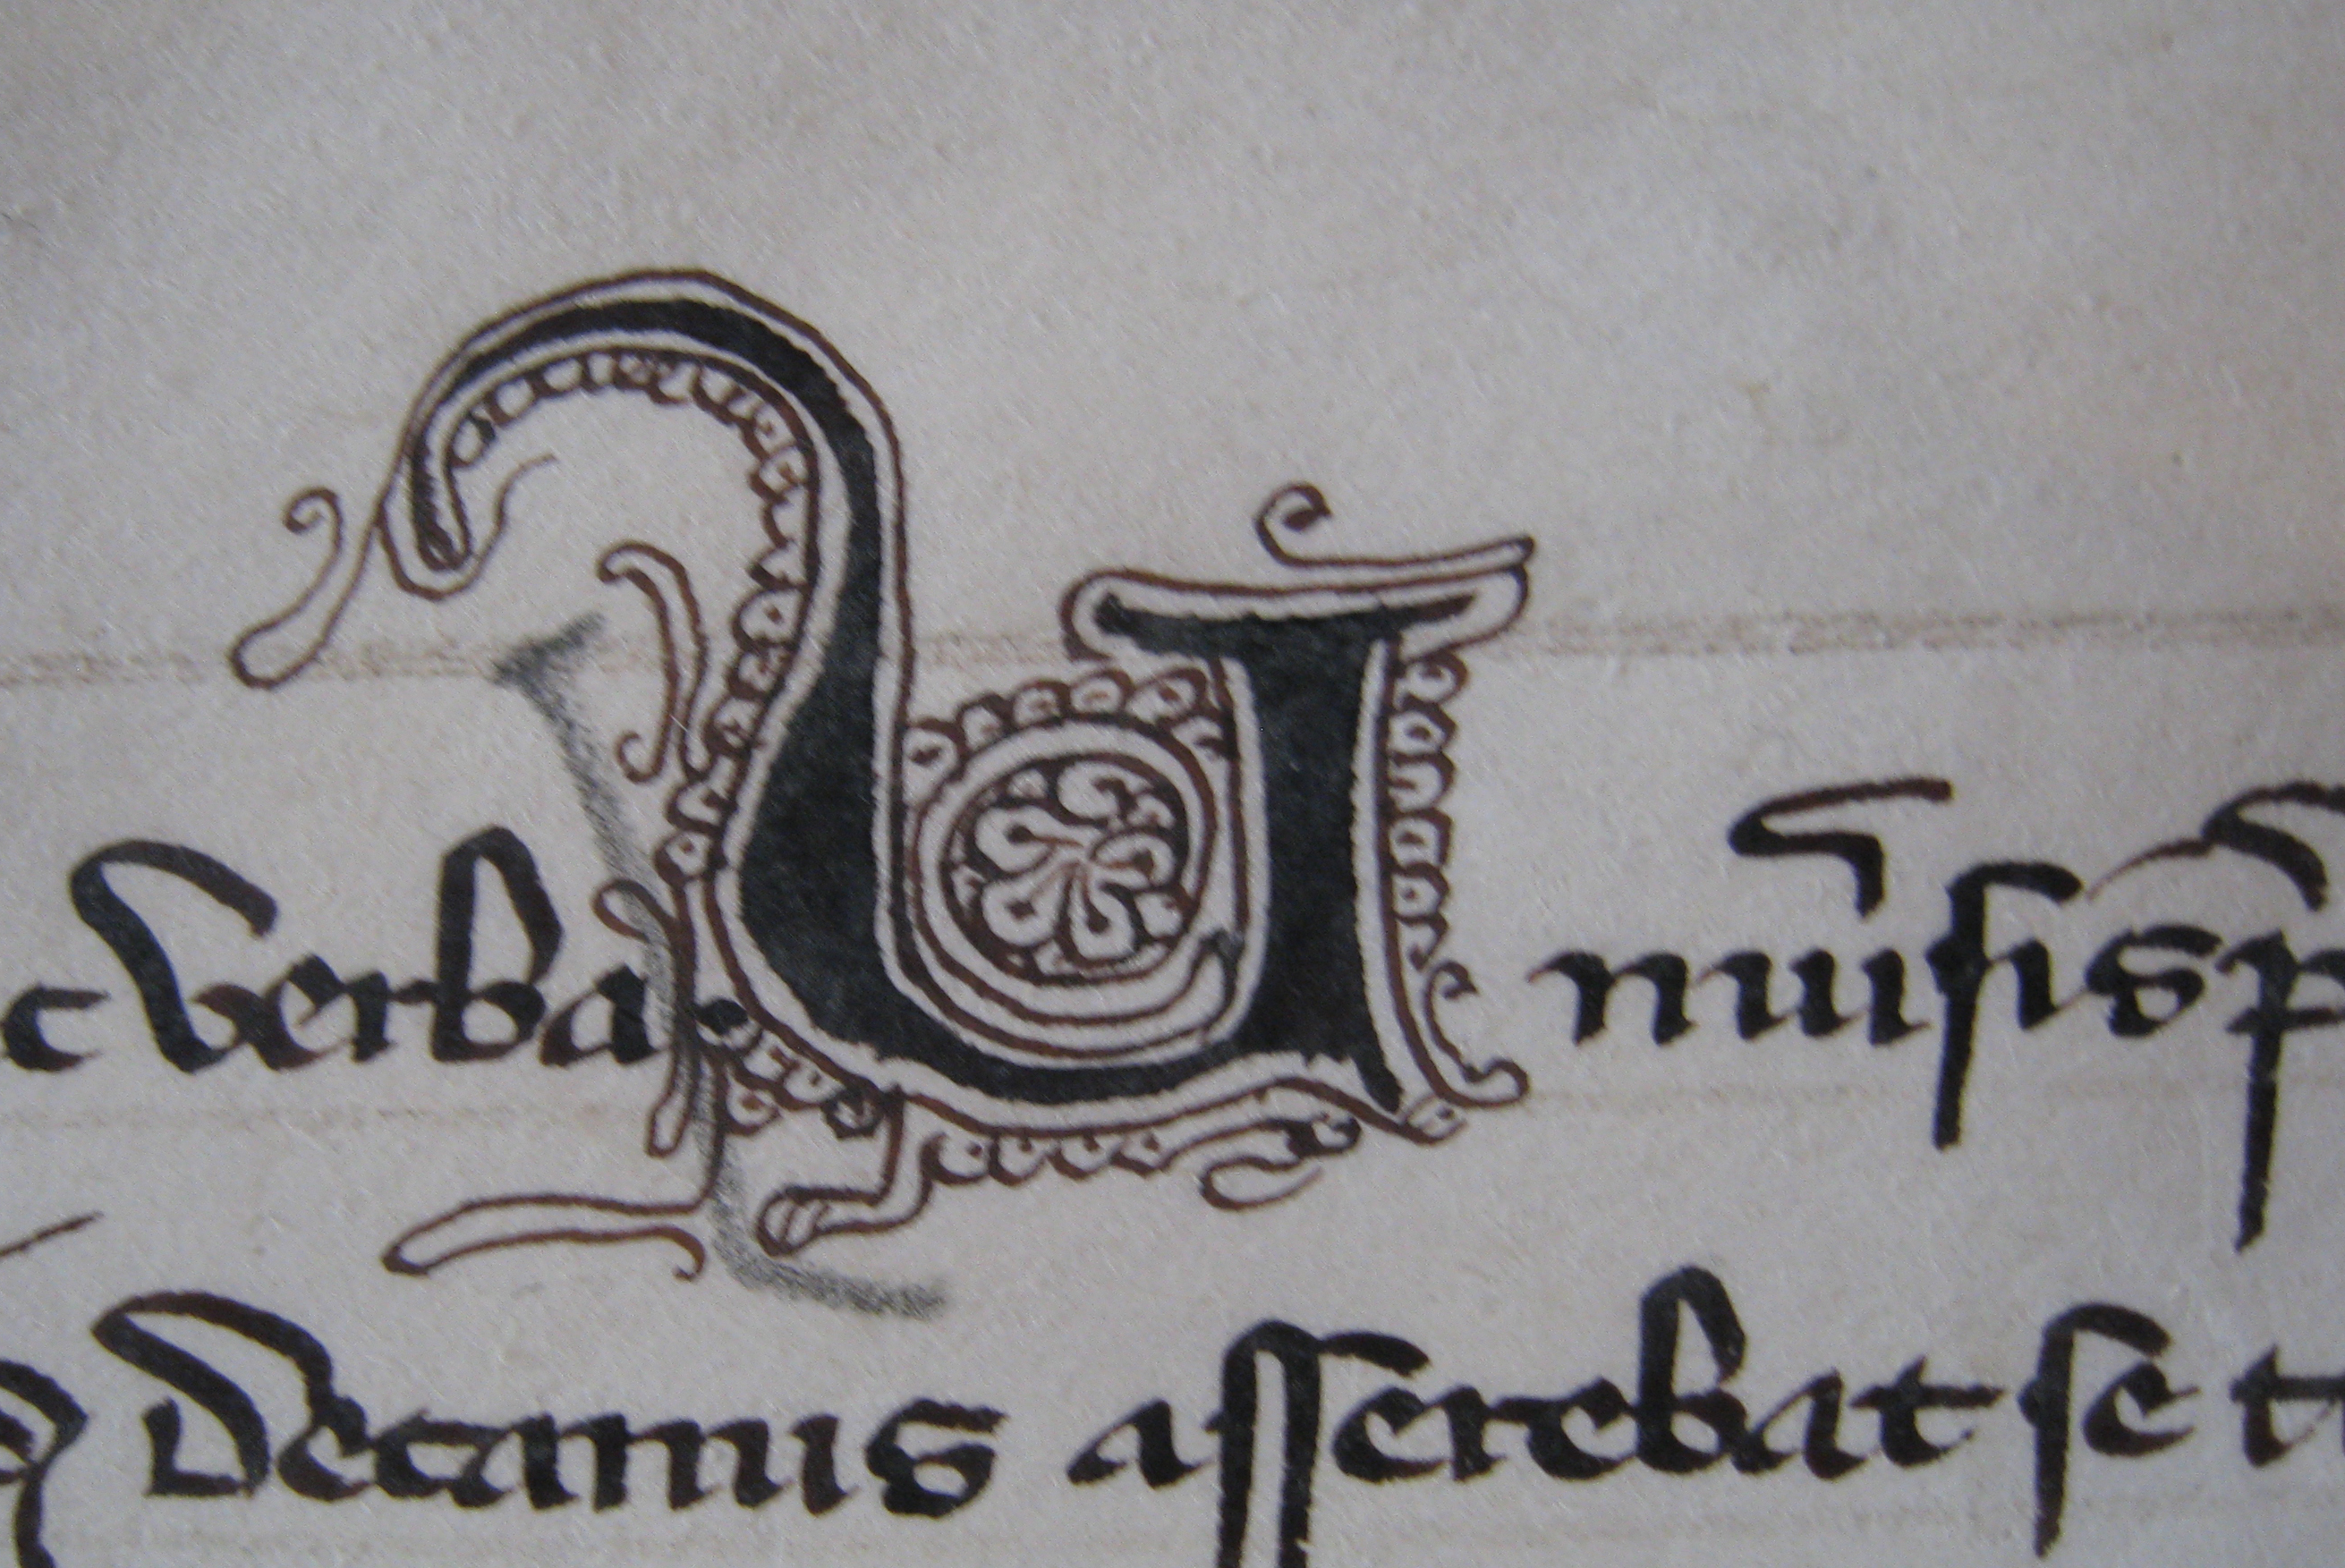 c verba U niũsis p̃
Decanus asserebat se t